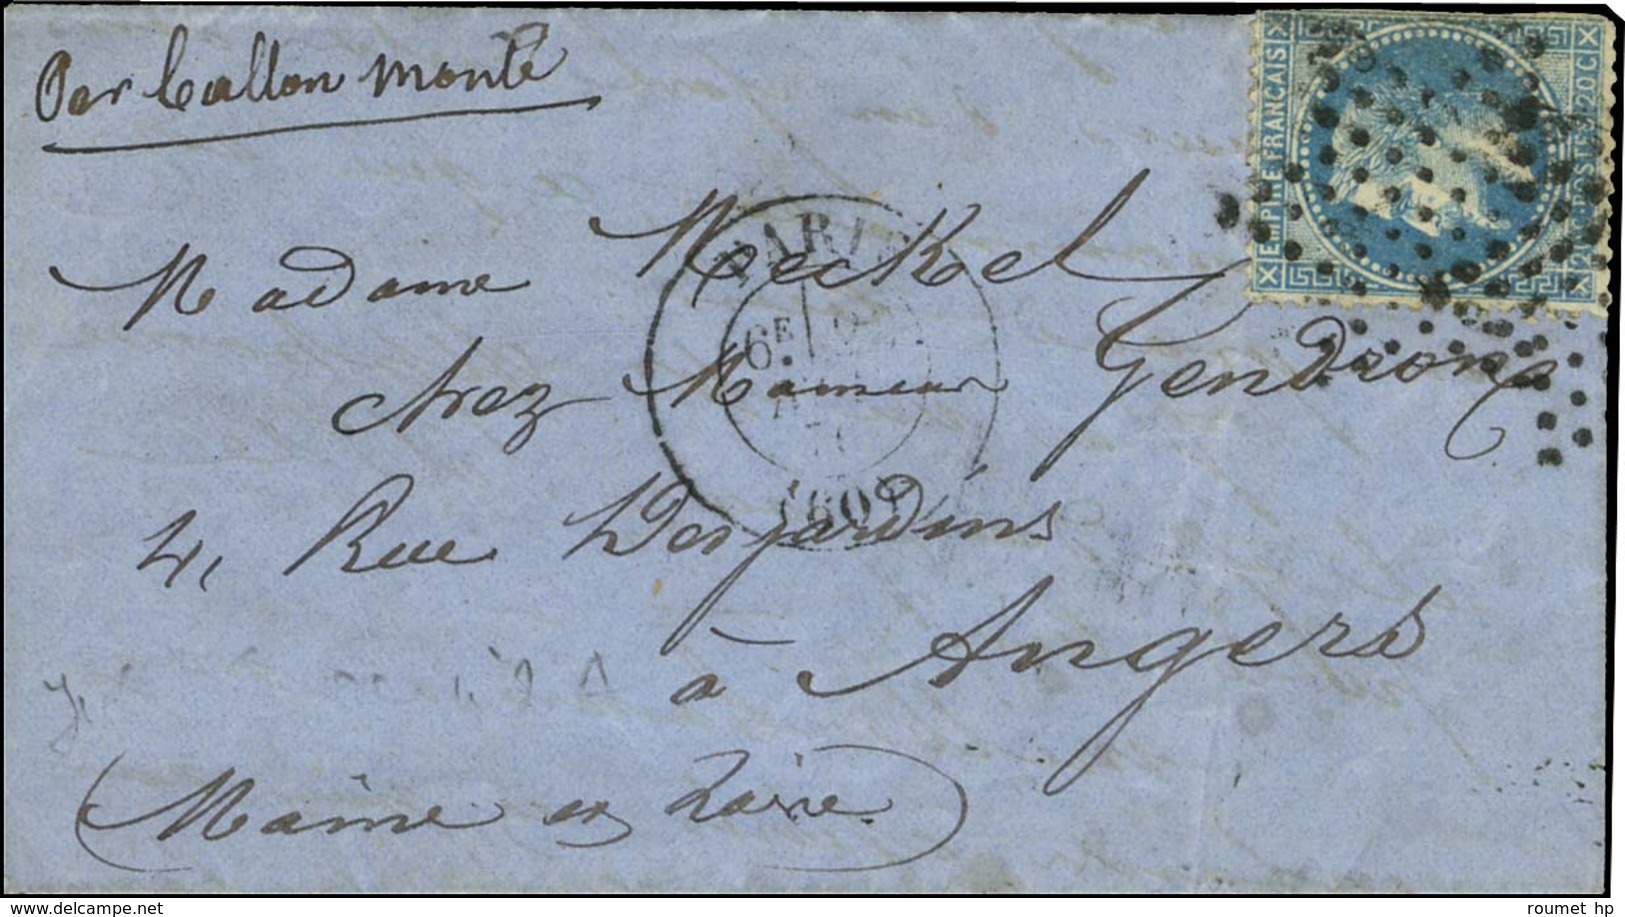 Par ballon monté
EMPIRE FRANÇAIS
20 C. POSTES 20 C.
PARIS
6E
70
(60)
Madame Meckel
chez Monsieur Gendron
4, Rue Desjardins
à Angers
(Maine et Loire)
www.delcampe.net
roumet hp